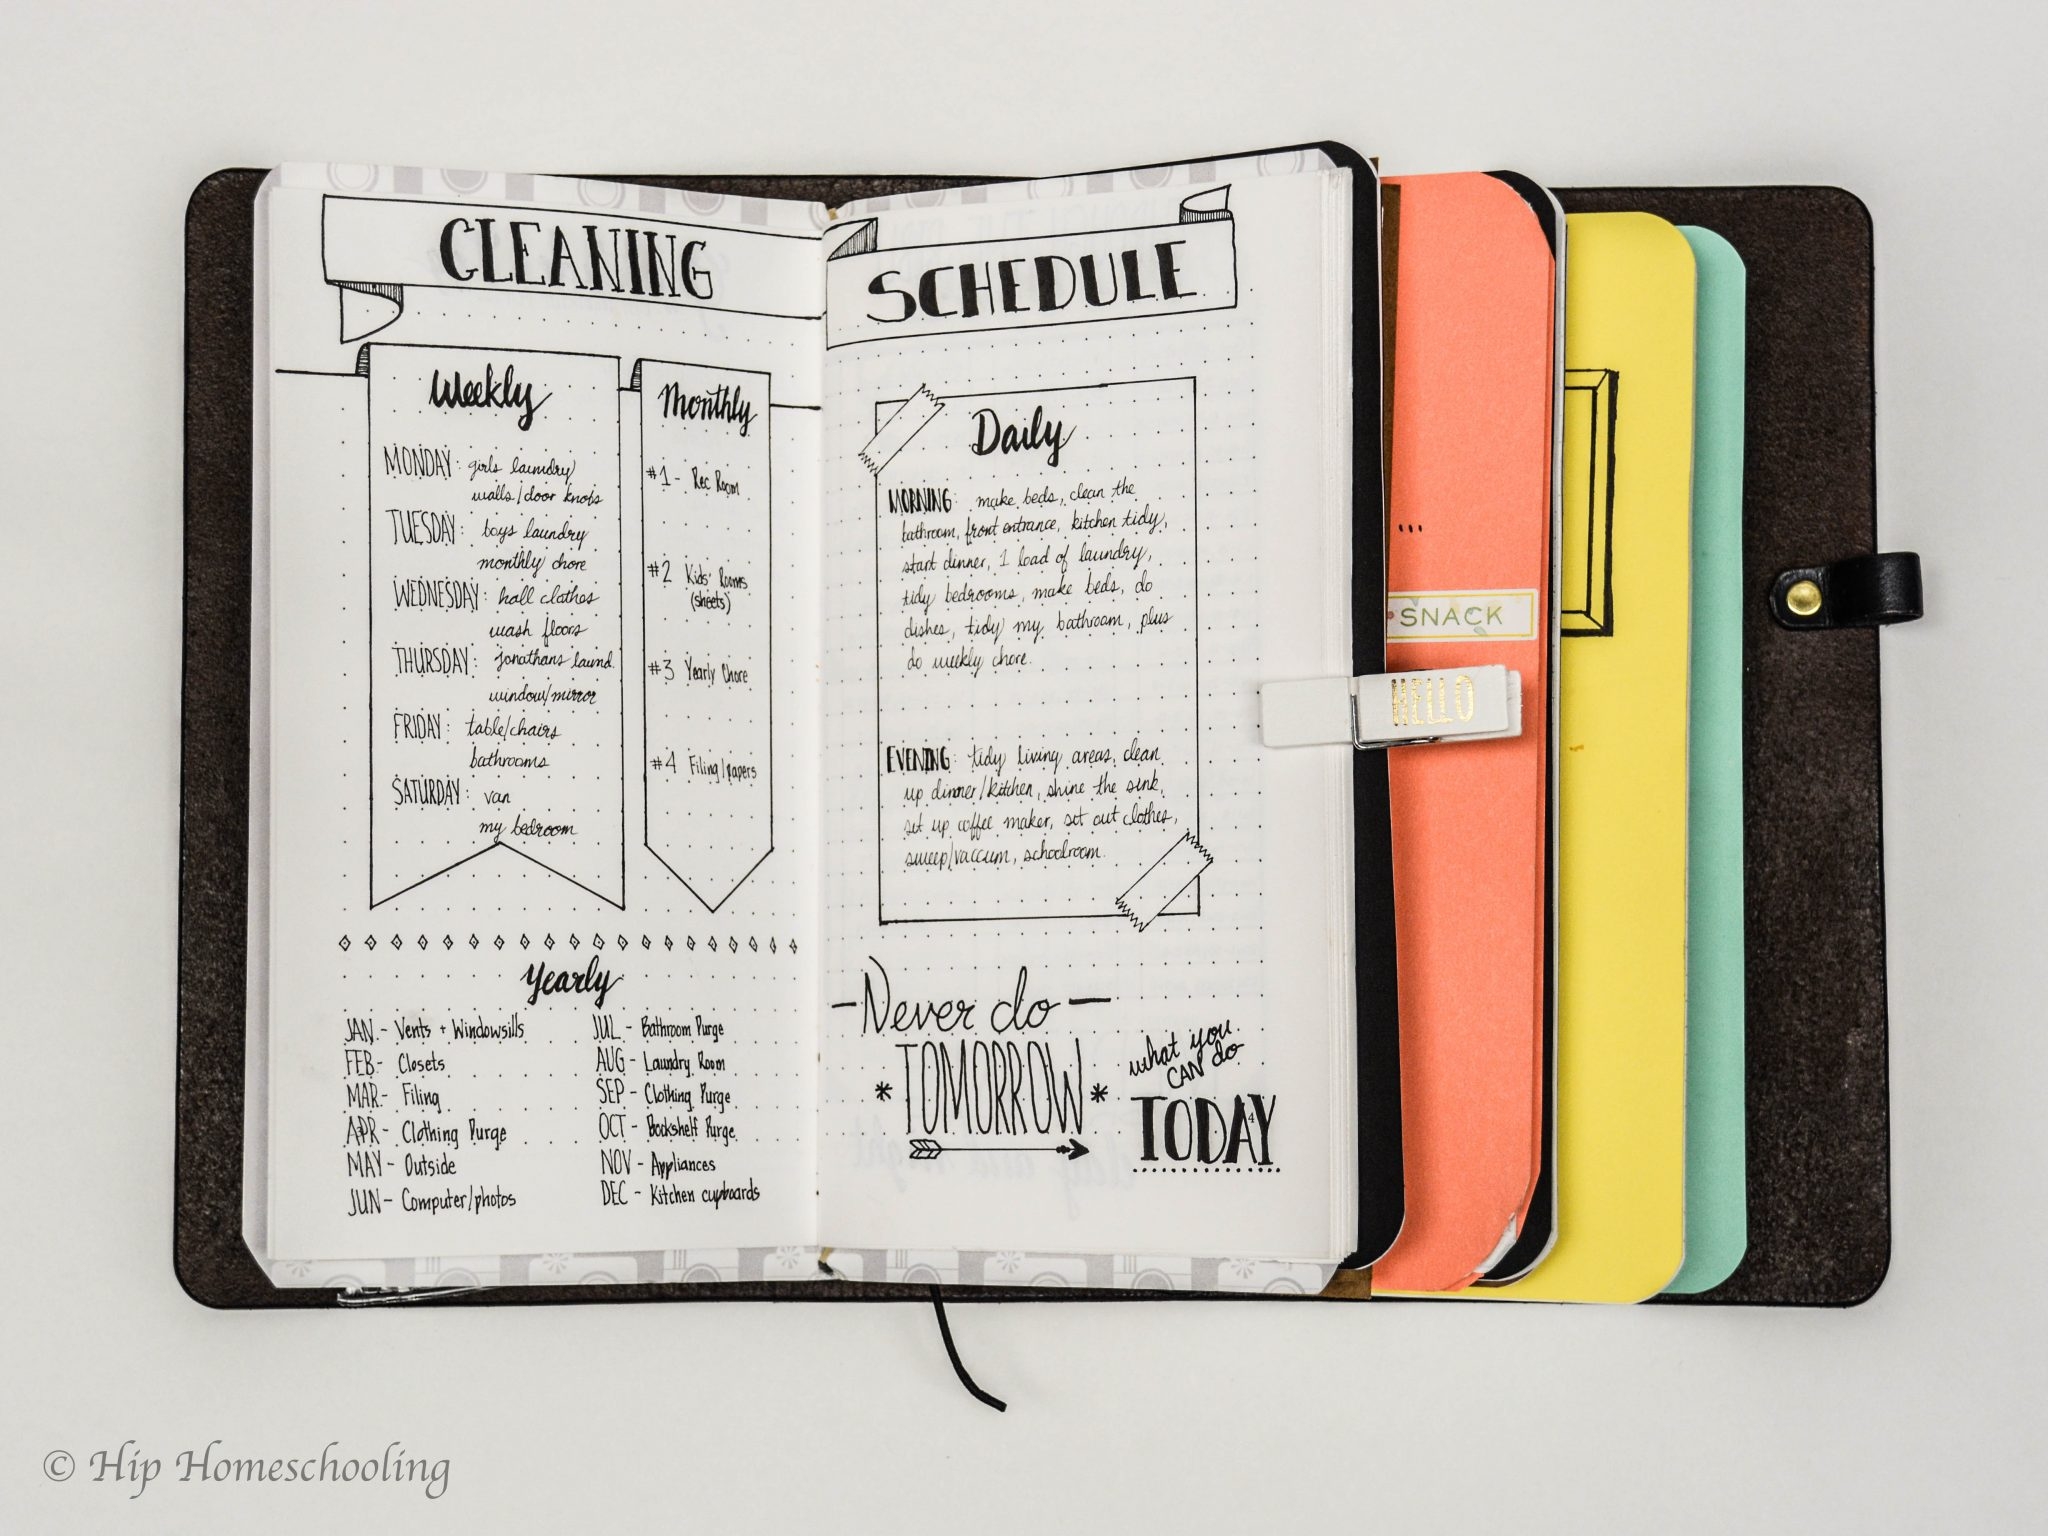 CLEANING
SCHEDULE
Weekly
MONDAY: girls laundry
walls/door knobs
TUESDAY: boys laundry
monthly chore
WEDNESDAY: hall clothes
wash floors
THURSDAY: jonathans laund.
window/mirror
FRIDAY: table/chairs
bathrooms
SATURDAY: van
my bedroom
Monthly
#1- Rec Room
#2 Kids' Rooms
(sheets)
#3 Yearly Chore
#4 Filing/papers
Yearly
JAN- Vents + Windowsills
FEB- Closets
MAR- Filing
APR- Clothing Purge
MAY- Outside
JUN- Computer/photos
JUL- Bathroom Purge
AUG- Laundry Room
SEP- Clothing Purge
OCT- Bookshelf Purge
NOV- Appliances
DEC- Kitchen cupboards
Daily
MORNING: make beds, clean the
bathroom, front entrance, kitchen tidy,
start dinner, 1 load of laundry,
tidy bedrooms, make beds, do
dishes, tidy my bathroom, plus
do weekly chore.
EVENING: tidy living areas, clean
up dinner/kitchen, shine the sink,
set up coffee maker, set out clothes,
sweep/vaccum, schoolroom.
-Never do-
*TOMORROW*
what you
CAN do
TODAY
...
SNACK
HELLO
© Hip Homeschooling